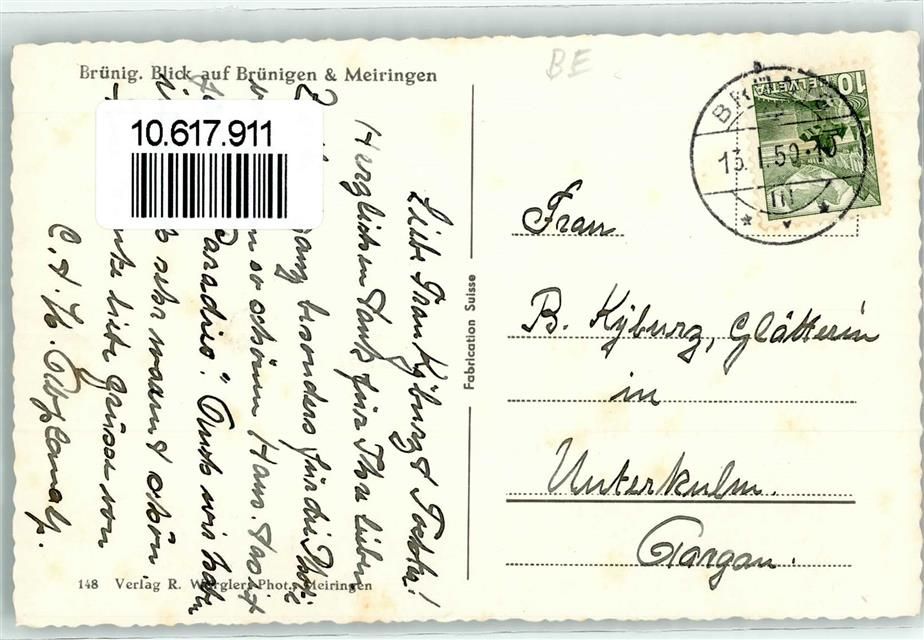 Brünig. Blick auf Brünigen & Meiringen
BE
10.617.911
Liebe Frau Kÿburz & Tochter!
Herzlichen Dank für Ihre lieben
ganz besonders für die Photi
so schönen Haus. Das ist
"Paradies". Auch wir haben
sehr warm & schön.
liebe Grüsse von
C. & H.
Fabrication Suisse
10
HELVETIA
13. I. 50
Frau
B. Kÿburz, Glätterin
in
Unterkulm.
Aargau.
148 Verlag R. Würgler, Phot., Meiringen